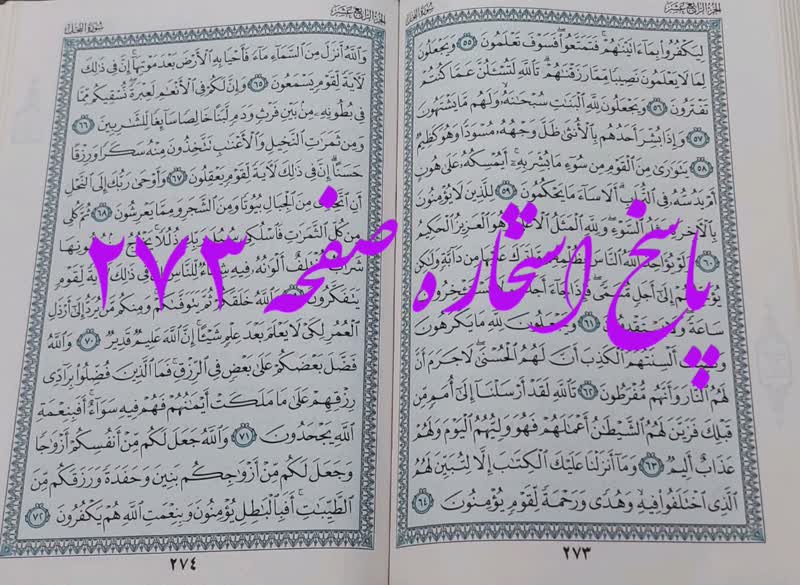 الجزء الرابع عشر
سورة النحل
لِيَكْفُرُوا۟ بِمَآ ءَاتَيْنَٰهُمْ ۚ فَتَمَتَّعُوا۟ ۖ فَسَوْفَ تَعْلَمُونَ ٥٥ وَيَجْعَلُونَ
لِمَا لَا يَعْلَمُونَ نَصِيبًا مِّمَّا رَزَقْنَٰهُمْ ۗ تَٱللَّهِ لَتُسْـَٔلُنَّ عَمَّا كُنتُمْ
تَفْتَرُونَ ٥٦ وَيَجْعَلُونَ لِلَّهِ ٱلْبَنَٰتِ سُبْحَٰنَهُۥ ۙ وَلَهُم مَّا يَشْتَهُونَ
٥٧ وَإِذَا بُشِّرَ أَحَدُهُم بِٱلْأُنثَىٰ ظَلَّ وَجْهُهُۥ مُسْوَدًّا وَهُوَ كَظِيمٌ
٥٨ يَتَوَٰرَىٰ مِنَ ٱلْقَوْمِ مِن سُوٓءِ مَا بُشِّرَ بِهِۦٓ ۚ أَيُمْسِكُهُۥ عَلَىٰ هُونٍ
أَمْ يَدُسُّهُۥ فِى ٱلتُّرَابِ ۗ أَلَا سَآءَ مَا يَحْكُمُونَ ٥٩ لِلَّذِينَ لَا يُؤْمِنُونَ
بِٱلْءَاخِرَةِ مَثَلُ ٱلسَّوْءِ ۖ وَلِلَّهِ ٱلْمَثَلُ ٱلْأَعْلَىٰ ۚ وَهُوَ ٱلْعَزِيزُ ٱلْحَكِيمُ
٦٠ وَلَوْ يُؤَاخِذُ ٱللَّهُ ٱلنَّاسَ بِظُلْمِهِم مَّا تَرَكَ عَلَيْهَا مِن دَآبَّةٍ وَلَٰكِن
يُؤَخِّرُهُمْ إِلَىٰٓ أَجَلٍ مُّسَمًّى ۖ فَإِذَا جَآءَ أَجَلُهُمْ لَا يَسْتَـْٔخِرُونَ
سَاعَةً ۖ وَلَا يَسْتَقْدِمُونَ ٦١ وَيَجْعَلُونَ لِلَّهِ مَا يَكْرَهُونَ
وَتَصِفُ أَلْسِنَتُهُمُ ٱلْكَذِبَ أَنَّ لَهُمُ ٱلْحُسْنَىٰ ۖ لَا جَرَمَ أَنَّ
لَهُمُ ٱلنَّارَ وَأَنَّهُم مُّفْرَطُونَ ٦٢ تَٱللَّهِ لَقَدْ أَرْسَلْنَآ إِلَىٰٓ أُمَمٍ مِّن
قَبْلِكَ فَزَيَّنَ لَهُمُ ٱلشَّيْطَٰنُ أَعْمَٰلَهُمْ فَهُوَ وَلِيُّهُمُ ٱلْيَوْمَ وَلَهُمْ
عَذَابٌ أَلِيمٌ ٦٣ وَمَآ أَنزَلْنَا عَلَيْكَ ٱلْكِتَٰبَ إِلَّا لِتُبَيِّنَ لَهُمُ
ٱلَّذِى ٱخْتَلَفُوا۟ فِيهِ ۙ وَهُدًى وَرَحْمَةً لِّقَوْمٍ يُؤْمِنُونَ ٦٤
٢٧٣
الجزء الرابع عشر
سورة النحل
وَٱللَّهُ أَنزَلَ مِنَ ٱلسَّمَآءِ مَآءً فَأَحْيَا بِهِ ٱلْأَرْضَ بَعْدَ مَوْتِهَآ ۚ إِنَّ فِى ذَٰلِكَ
لَءَايَةً لِّقَوْمٍ يَسْمَعُونَ ٦٥ وَإِنَّ لَكُمْ فِى ٱلْأَنْعَٰمِ لَعِبْرَةً ۖ نُّسْقِيكُم مِّمَّا
فِى بُطُونِهِۦ مِنۢ بَيْنِ فَرْثٍ وَدَمٍ لَّبَنًا خَالِصًا سَآئِغًا لِّلشَّٰرِبِينَ ٦٦
وَمِن ثَمَرَٰتِ ٱلنَّخِيلِ وَٱلْأَعْنَٰبِ تَتَّخِذُونَ مِنْهُ سَكَرًا وَرِزْقًا
حَسَنًا ۗ إِنَّ فِى ذَٰلِكَ لَءَايَةً لِّقَوْمٍ يَعْقِلُونَ ٦٧ وَأَوْحَىٰ رَبُّكَ إِلَى ٱلنَّحْلِ
أَنِ ٱتَّخِذِى مِنَ ٱلْجِبَالِ بُيُوتًا وَمِنَ ٱلشَّجَرِ وَمِمَّا يَعْرِشُونَ ٦٨ ثُمَّ كُلِى
مِن كُلِّ ٱلثَّمَرَٰتِ فَٱسْلُكِى سُبُلَ رَبِّكِ ذُلُلًا ۚ يَخْرُجُ مِنۢ بُطُونِهَا
شَرَابٌ مُّخْتَلِفٌ أَلْوَٰنُهُۥ فِيهِ شِفَآءٌ لِّلنَّاسِ ۗ إِنَّ فِى ذَٰلِكَ لَءَايَةً لِّقَوْمٍ
يَتَفَكَّرُونَ ٦٩ وَٱللَّهُ خَلَقَكُمْ ثُمَّ يَتَوَفَّىٰكُمْ ۚ وَمِنكُم مَّن يُرَدُّ إِلَىٰٓ أَرْذَلِ
ٱلْعُمُرِ لِكَىْ لَا يَعْلَمَ بَعْدَ عِلْمٍ شَيْـًٔا ۚ إِنَّ ٱللَّهَ عَلِيمٌ قَدِيرٌ ٧٠ وَٱللَّهُ
فَضَّلَ بَعْضَكُمْ عَلَىٰ بَعْضٍ فِى ٱلرِّزْقِ ۚ فَمَا ٱلَّذِينَ فُضِّلُوا۟ بِرَآدِّى
رِزْقِهِمْ عَلَىٰ مَا مَلَكَتْ أَيْمَٰنُهُمْ فَهُمْ فِيهِ سَوَآءٌ ۚ أَفَبِنِعْمَةِ
ٱللَّهِ يَجْحَدُونَ ٧١ وَٱللَّهُ جَعَلَ لَكُم مِّنْ أَنفُسِكُمْ أَزْوَٰجًا
وَجَعَلَ لَكُم مِّنْ أَزْوَٰجِكُم بَنِينَ وَحَفَدَةً وَرَزَقَكُم مِّنَ
ٱلطَّيِّبَٰتِ ۚ أَفَبِٱلْبَٰطِلِ يُؤْمِنُونَ وَبِنِعْمَتِ ٱللَّهِ هُمْ يَكْفُرُونَ ٧٢
٢٧٤
پاسخ استخاره صفحه ۲۷۳